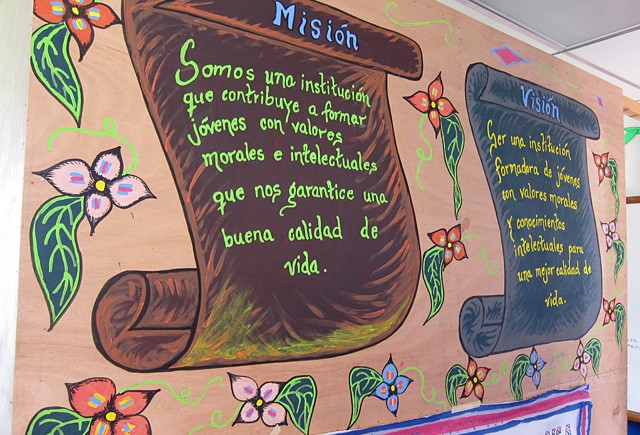 Misión
Somos una institución
que contribuye a formar
jóvenes con valores
morales e intelectuales
que nos garantice una
buena calidad de
vida.
Visión
Ser una institución
formadora de jóvenes
con valores morales
y conocimientos
intelectuales para
una mejor calidad de
vida.